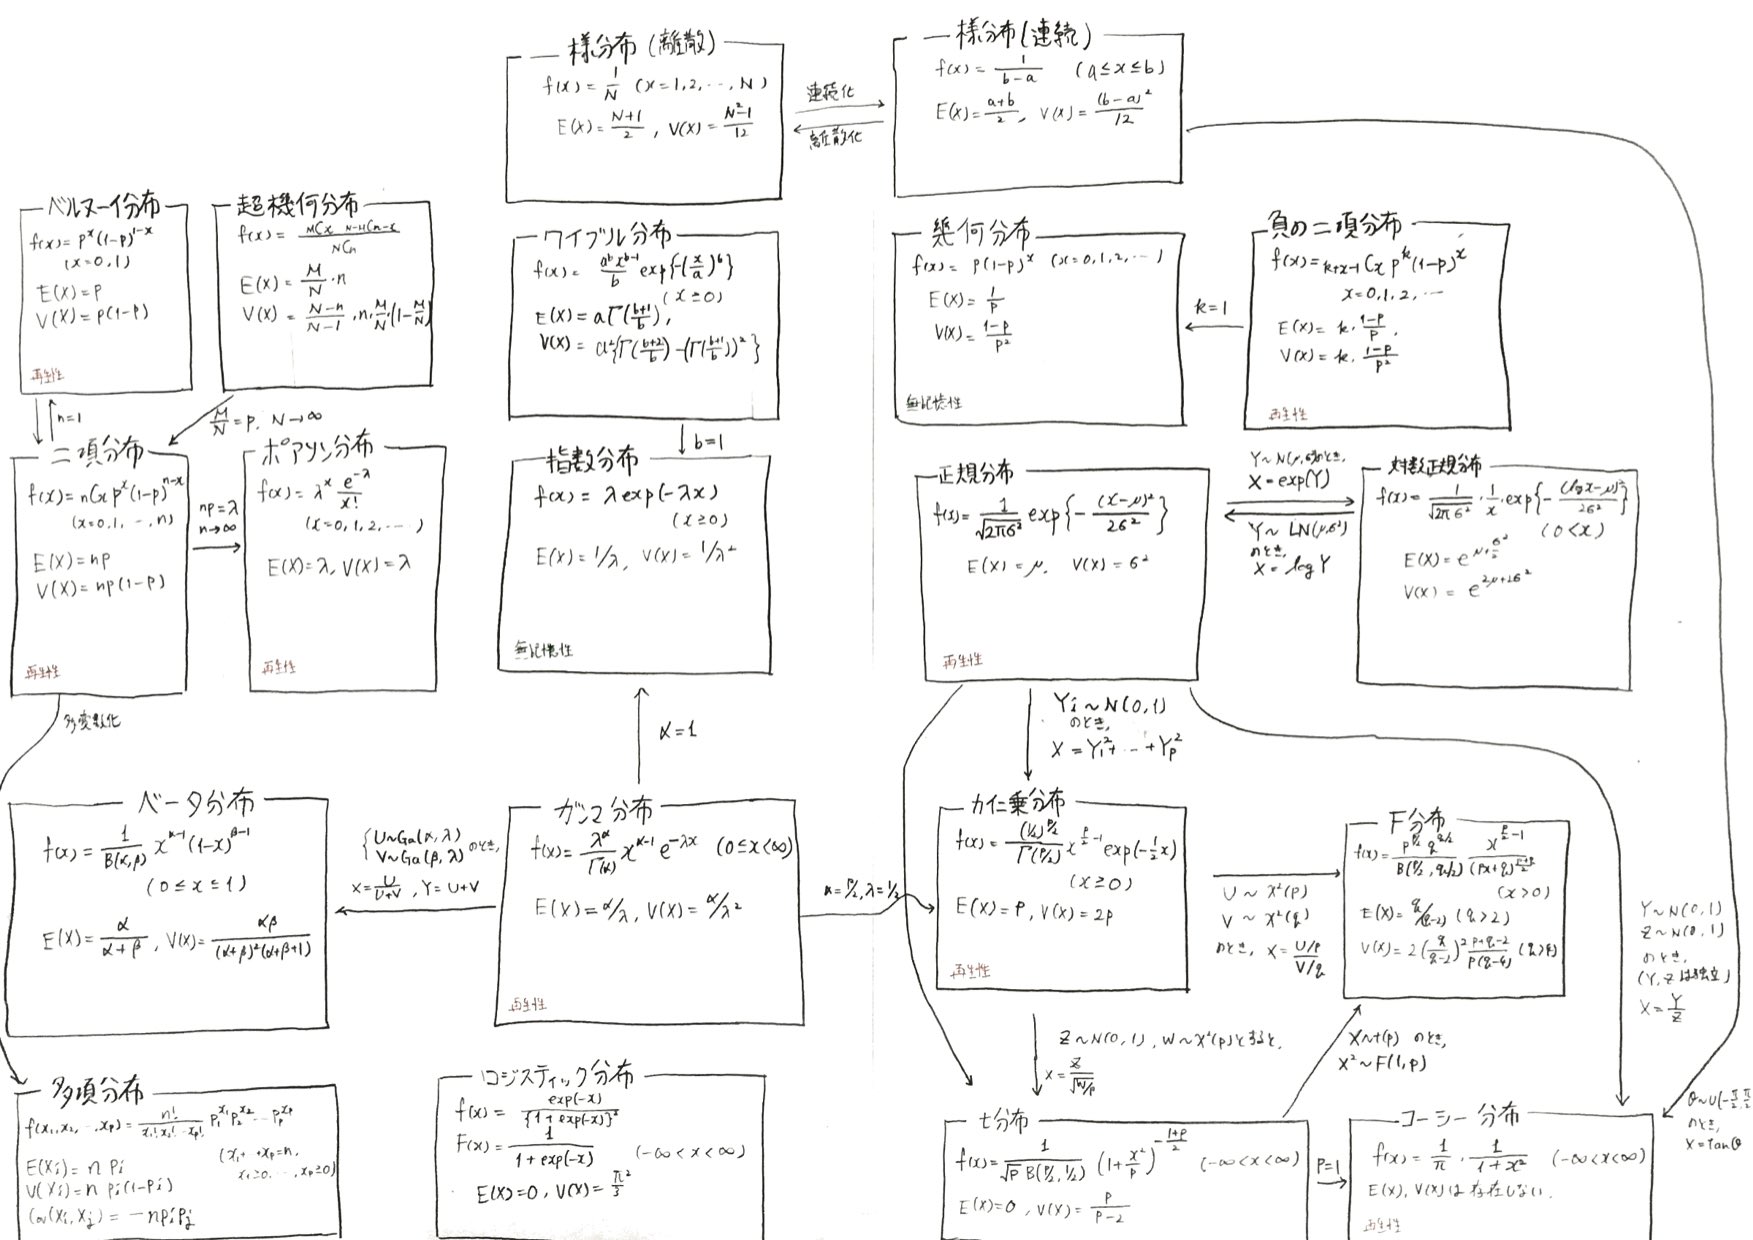 一様分布(離散)
f(x) = 1/N (x=1,2,…,N)
E(X) = N+1/2 , V(X) = N²-1/12
連続化
離散化
一様分布(連続)
f(x) = 1/b-a (a≤x≤b)
E(X) = a+b/2 , V(X) = (b-a)²/12
ベルヌーイ分布
f(x) = p^x (1-p)^1-x
(x=0,1)
E(X) = p
V(X) = p(1-p)
再生性
超機何分布
f(x) = MCx N-MCn-x/NCn
E(X) = M/N · n
V(X) = N-n/N-1 · n · M/N (1-M/N)
ワイブル分布
f(x) = a^b x^b-1/b exp{-(x/a)^b}
(x≥0)
E(X) = aΓ(b+1/b),
V(X) = a²{Γ(b+2/b)-(Γ(b+1/b))²}
幾何分布
f(x) = p(1-p)^x (x=0,1,2,…)
E(X) = 1/p
V(X) = 1-p/p²
無記憶性
k=1
負の二項分布
f(x) = k+x-1Cx p^k (1-p)^x
x=0,1,2,…
E(X) = k · 1-p/p .
V(X) = k · 1-p/p²
再生性
n=1
M/N = p, N→∞
b=1
二項分布
f(x) = nCx p^x (1-p)^n-x
(x=0,1,…,n)
E(X) = np
V(X) = np(1-p)
再生性
np=λ
n→∞
ポアソン分布
f(x) = λ^x e^-λ/x!
(x=0,1,2,…)
E(X)=λ, V(X)=λ
再生性
指数分布
f(x) = λexp(-λx)
(x≥0)
E(X) = 1/λ, V(X) = 1/λ²
無記憶性
正規分布
f(x) = 1/√2πσ² exp{-(x-μ)²/2σ²}
E(X) = μ, V(X) = σ²
再生性
Y~N(μ,σ²)のとき,
X=exp(Y)
Y~LN(μ,σ²)
のとき,
X=logY
対数正規分布
f(x) = 1/√2πσ² · 1/x · exp{-(logx-μ)²/2σ²}
(0<x)
E(X) = e^μ+σ²/2
V(X) = e^2μ+2σ²
多変数化
α=1
Yi~N(0,1)
のとき,
X=Y1²+…+Yp²
ベータ分布
f(x) = 1/B(α,β) x^α-1 (1-x)^β-1
(0≤x≤1)
E(X) = α/α+β , V(X) = αβ/(α+β)²(α+β+1)
U~Ga(α,λ)
V~Ga(β,λ) のとき,
X=U/U+V , Y=U+V
ガンマ分布
f(x) = λ^α/Γ(α) x^α-1 e^-λx (0≤x<∞)
E(X) = α/λ, V(X) = α/λ²
再生性
α=p/2, λ=1/2
カイ二乗分布
f(x) = (1/2)^p/2/Γ(p/2) x^p/2-1 exp(-1/2x)
(x≥0)
E(X)=p, V(X)=2p
再生性
U~χ²(p)
V~χ²(q)
のとき, X=U/p/V/q
F分布
f(x) = p^p/2 q^q/2/B(p/2,q/2) x^p/2-1/(px+q)^p+q/2
(x>0)
E(X) = q/(q-2) (q>2)
V(X) = 2(q/q-2)² p+q-2/p(q-4) (q>4)
Y~N(0,1)
Z~N(0,1)
のとき,
(Y,Zは独立)
X=Y/Z
Z~N(0,1), W~χ²(p)とすると,
X=Z/√W/p
X~t(p) のとき,
X²~F(1,p)
θ~U(-π/2,π/2
のとき,
X=tanθ
多項分布
f(x1,x2,…,xp) = n!/x1!x2!…xp! p1^x1 p2^x2 … pp^xp
(x1+…+xp=n,
x1≥0,…,xp≥0)
E(Xi) = n pi
V(Xi) = n pi(1-pi)
Cov(Xi,Xj) = -npipj
ロジスティック分布
f(x) = exp(-x)/{1+exp(-x)}²
F(x) = 1/1+exp(-x) (-∞<x<∞)
E(X)=0, V(X)=π²/3
t分布
f(x) = 1/√p B(p/2,1/2) (1+x²/p)^-1+p/2 (-∞<x<∞)
E(X)=0, V(X)=p/p-2
p=1
コーシー分布
f(x) = 1/π · 1/1+x² (-∞<x<∞)
E(X), V(X)は存在しない.
再生性